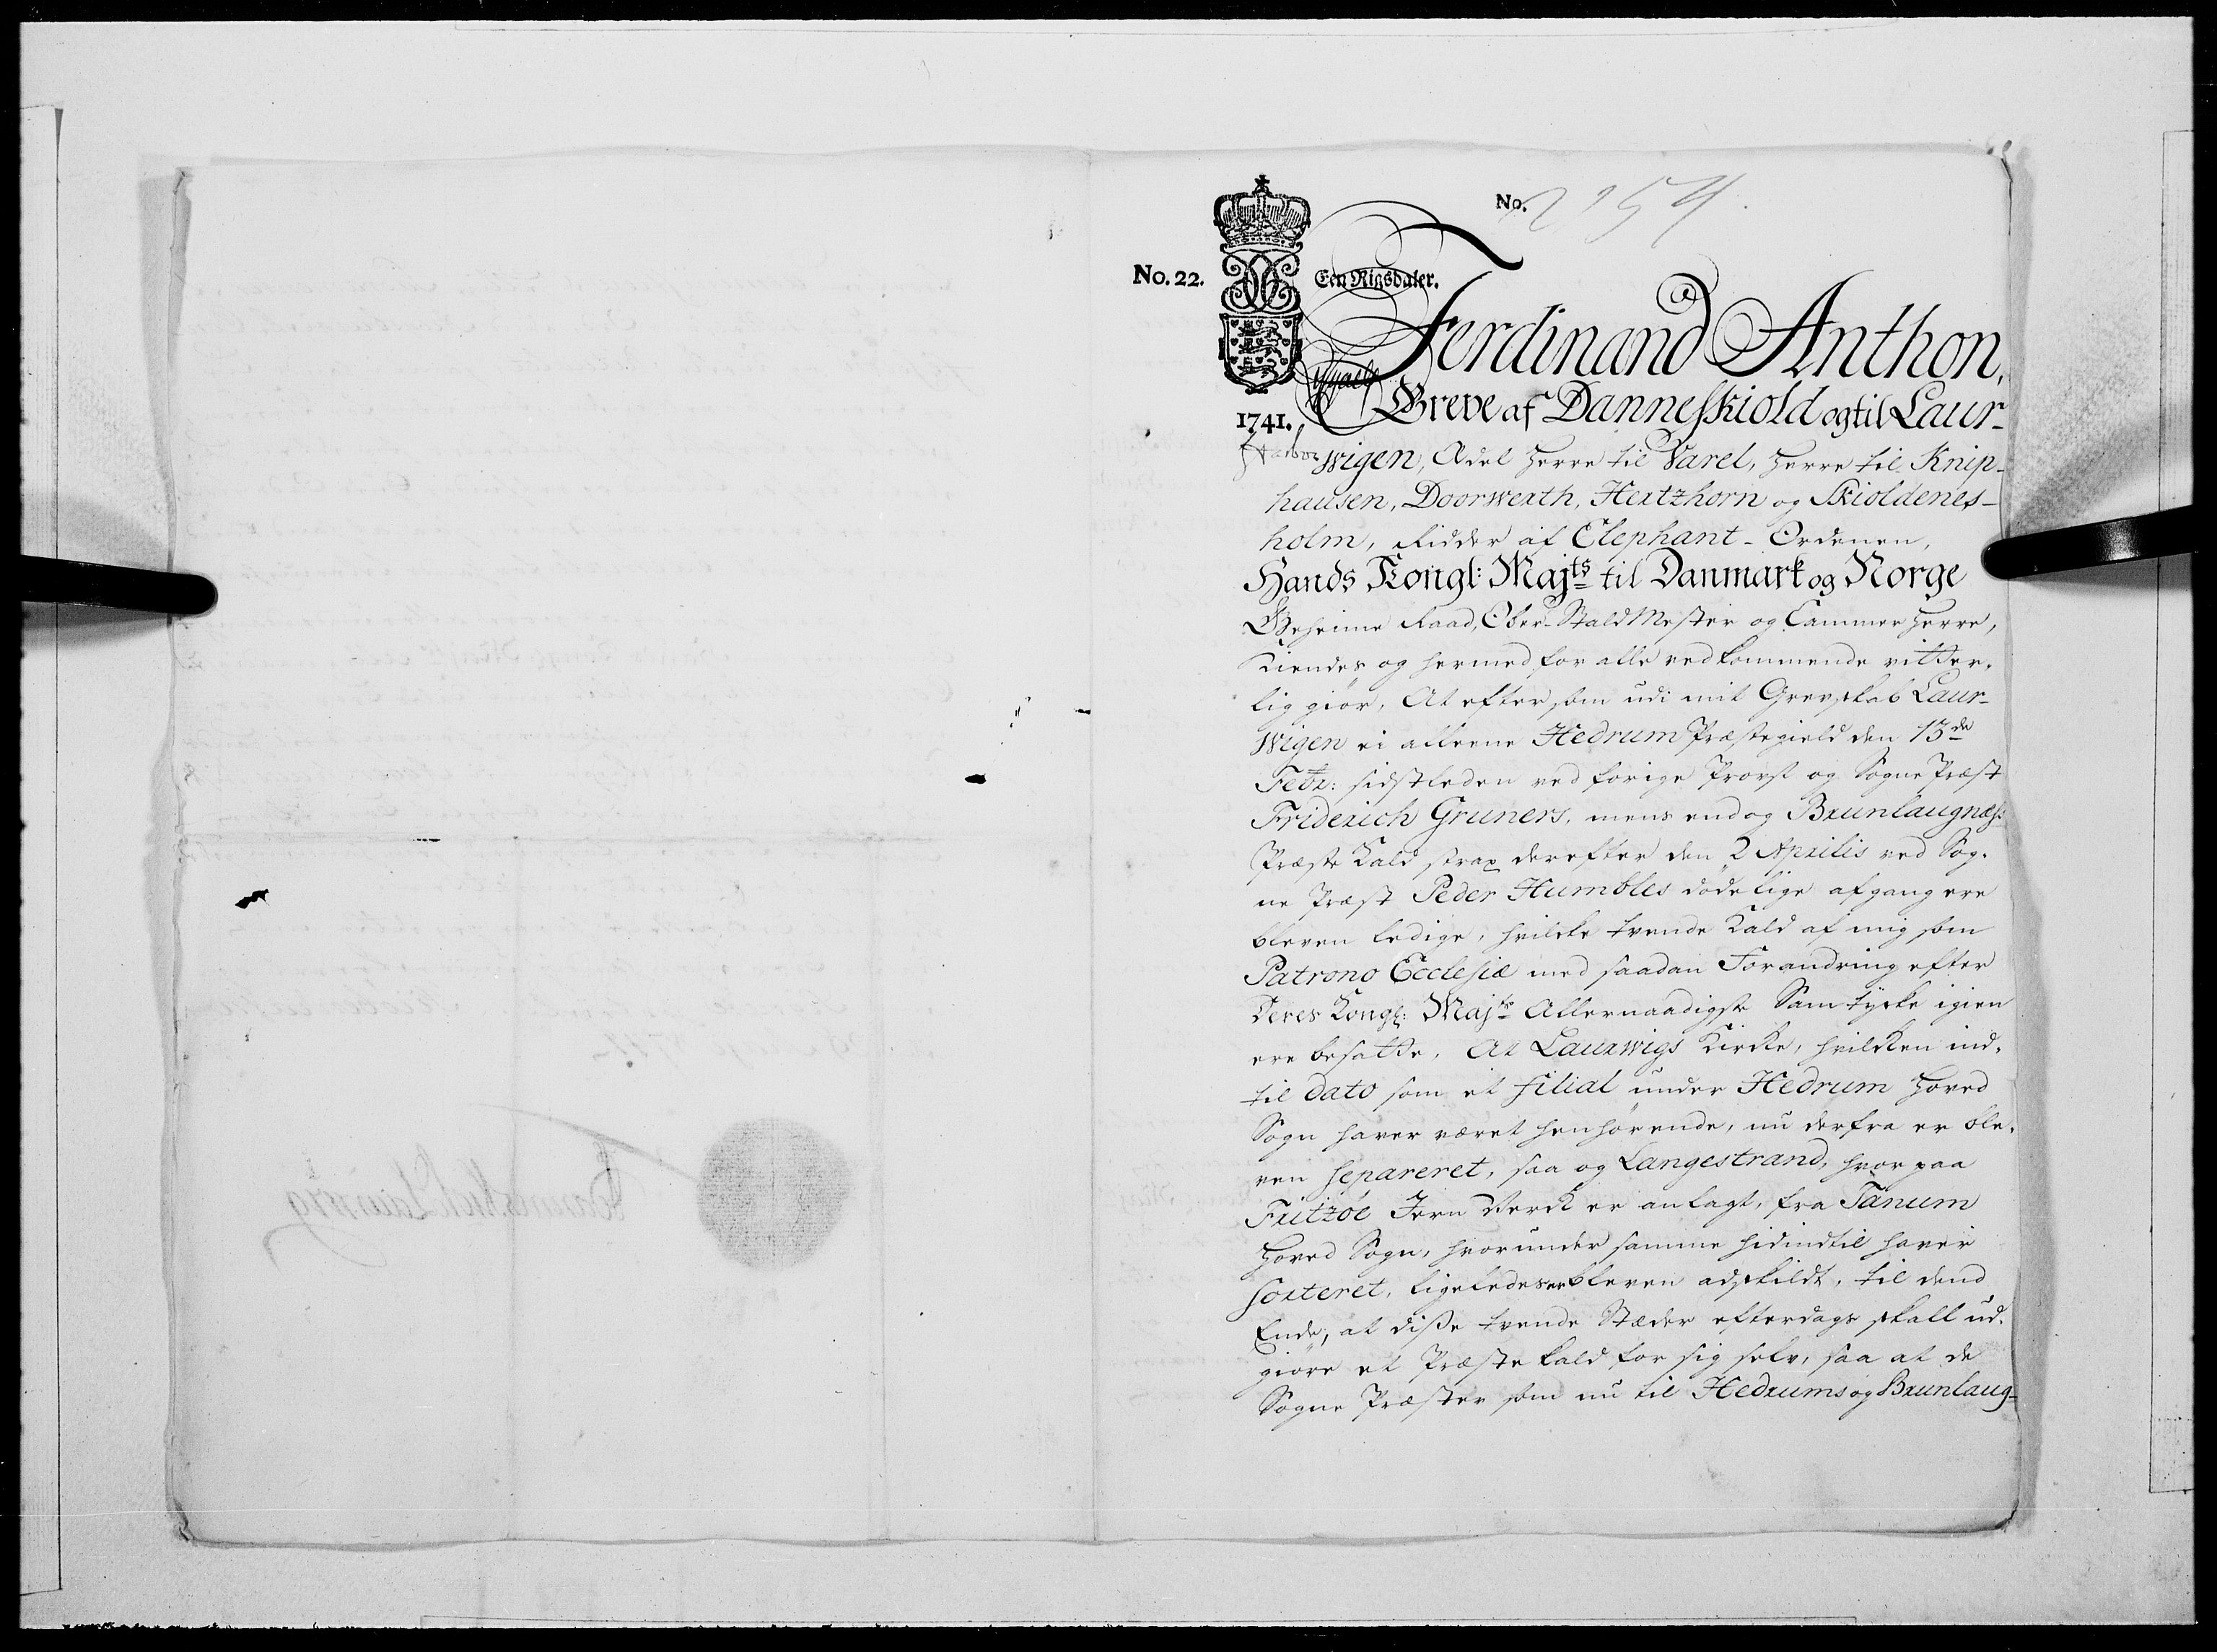 No. 2154.
No. 22.
Een Rigsdaler.
1741.
Ferdinand Anthon,
Greve af Dannesskiold og til Laur-
wigen, Ædel Herre til Varel, Herre til Knip-
hausen, Doorwerth, Hertzhorn og Skioldenes-
holm, Ridder af Elephant-Ordenen,
Hands Kongl: Majts til Danmark og Norge
Geheime Raad, Ober-StaldMester og Cammer Herre,
Kiendes og hermed for alle vedkommende vitter-
lig giör, At eftersom udi mit Grevskab Laur-
wigen ei alleene Hedrum Præstegield den 13de
Febr: sidstleden ved forige Provst og Sogne Præst
Friderich Gruners, mens endog Brunlaugnæss
Præste Kald strax derefter den 2 Aprilis ved Sog-
ne Præst Peder Humbles dödelige afgang ere
bleven ledige, hvilcke tvende Kald af mig som
Patrono Ecclesiæ med saadan Forandring efter
Deres Kongl: Majts Allernaadigste Samtycke igien
ere besatte, At Laurwigs Kirke, hvilken ind-
til dato som et filial under Hedrum Hoved
Sogn haver været henhörende, nu derfra er ble-
ven separeret, saa og Langestrand, hvor paa
Fritzöe Jern Verck er anlagt, fra Tanum
Hoved Sogn, hvorunder samme hidindtil haver
sorteret, ligeledes er bleven adskildt, til dend
Ende, at disse tvende Stæder efterdags skall ud-
giöre et Præste kald for sig selv, saa at de
Sogne Præster som nu til Hedrums og Brunlaug-